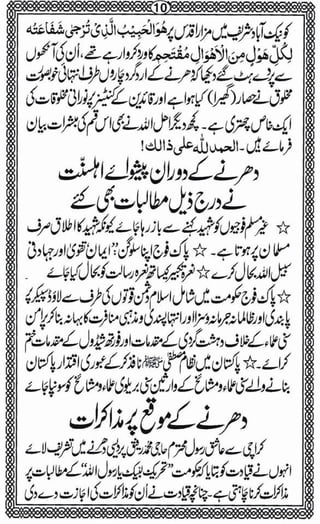 10
کو نیک آباد شریف میں مزار اقدس پر هُوَ الْحَبِيْبُ الَّذِيْ تُرْجٰى شَفَاعَتُهٗ
لِكُلِّ هَوْلٍ مِنَ الْاَهْوَالِ مُقْتَحِمٖ کا ورد کروا رہے تھے، اُن کی آنکھوں
سے پڑے ہٹ گئے دیکھا کہ دھرنے کے ارد گرد چاروں طرف انتہائی خوبصورت
مخلوق نے حصار (گھیرا) کیا ہوا ہے اور قائدین کے کنٹینر پر نورانی مخلوقات کی
ایک خاص چھتری ہے۔ کچھ دیگر اہل اللہ نے بھی اس قسم کی مبشرات بیان
فرمائے ہیں۔ الحمد للہ علی ذالك!
دھرنے کے دوران پیشوائے اہلسنّت
نے درج ذیل مطالبات بھی کئے
☆ غیر مسلم فوجیوں کو شہید کہنے سے باز رہا جائے کیونکہ شہید کا اطلاق صرف
مسلمان پر ہوتا ہے۔ ☆ پاک فوج اپنا سلوگن ”ایمان تقویٰ اور جہاد فی
سبیل اللہ بحال کرے ☆ نعرہ تکبیر کیساتھ نعرہ رسالت کو بحال کیا جائے
☆ پاک فوج حکومت میں شامل اسلام دشمن قوتوں کی طرف سے لاؤڈ سپیکر پر
پابندی اور ظالمانہ جرمانہ و سزا اور انتہا پسندی و مذہبی منافرت کا بہانہ بنا کر پرامن
سنی علماء کے خلاف دہشت گردی کے مقدمات اور فورتھ شیڈول کے مقدمات ختم
کرائے۔ ☆ پاکستان میں نظام مصطفٰی ﷺ نافذ کر کے عبوری اقتدار پاکستان
بنانے والے سنی علماء و مشائخ کے وارثین سنی بریلوی علماء و مشائخ کو سونپا جائے
دھرنے کے موقع پر مذاکرات
کراچی سے عاشق رسول محترم حاجی محمد رفیق پردیسی دھرنے میں تشریف لائے
انہوں نے قیادت کو بتایا کہ حکومت ”تحریک لبیک یا رسول اللہ“ کے مطالبات پر
مذاکرات کرنا چاہتی ہے۔ چنانچہ قیادت نے اُن کو مذاکرات کی اجازت دے دی